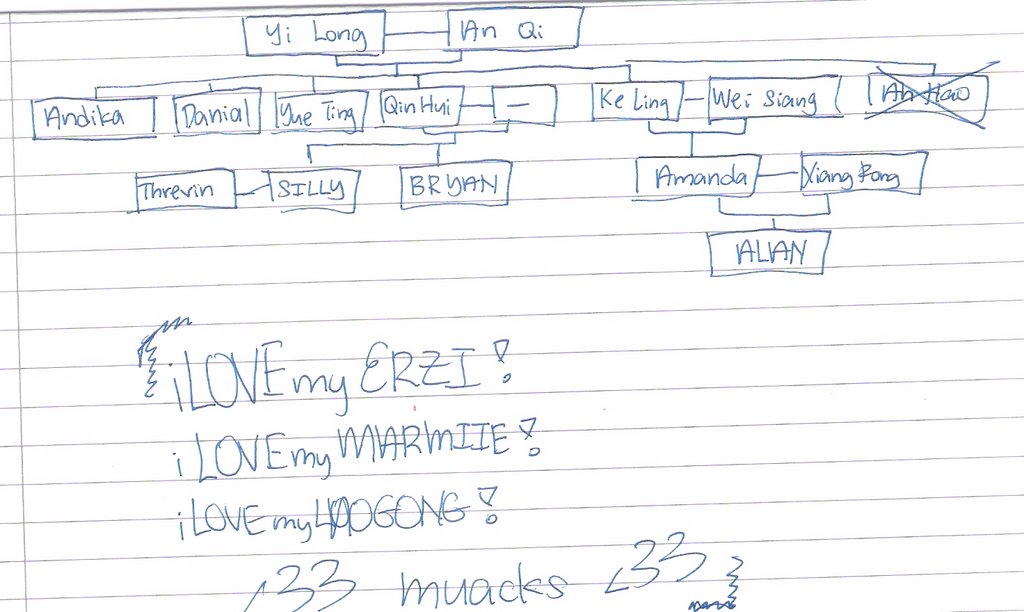 Yi Long An Qi
Andika Danial Yue Ting Qin Hui — Ke Ling Wei Siang Ah Hao
Threvin SILLY BRYAN Amanda Xiang Rong
ALVAN
i LOVE my ERZI!
i LOVE my MARMIIE!
i LOVE my LAOGONG!
<33 muacks <33